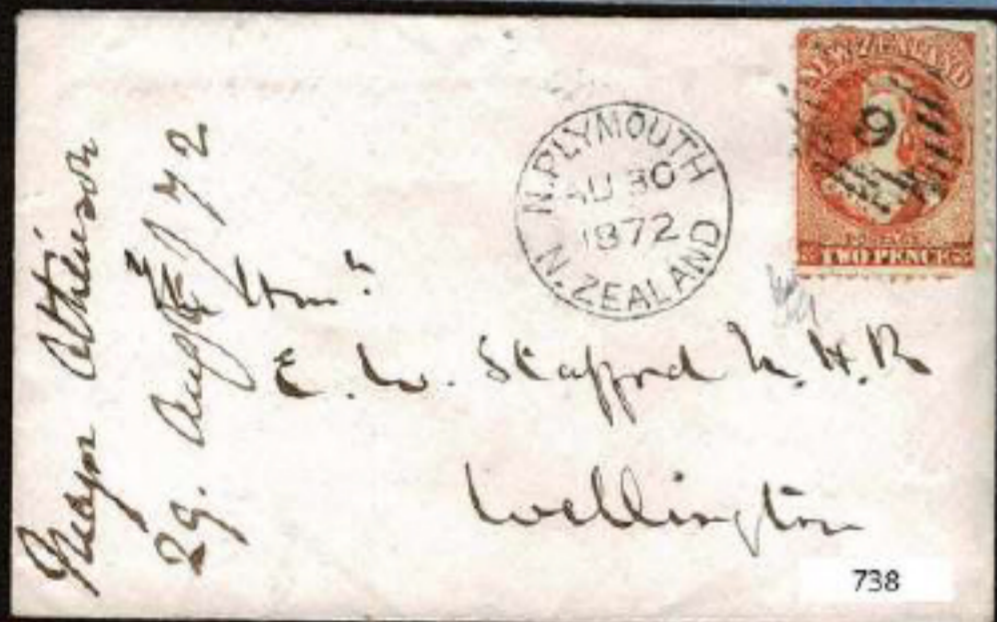 NEW ZEALAND
9
POSTAGE
TWO PENCE
N. PLYMOUTH
AU 30
1872
N. ZEALAND
Major Atkinson
29. Augt / 72
The Honble
E. W. Stafford M. H. R
Wellington
738